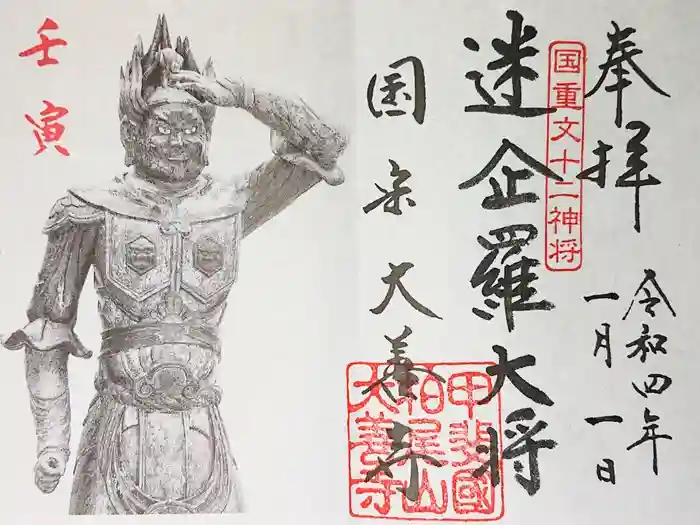 奉拝
令和四年
一月一日
国重文十二神将
迷企羅大将
国宗大善寺
甲斐國
柏尾山
大善寺
壬寅